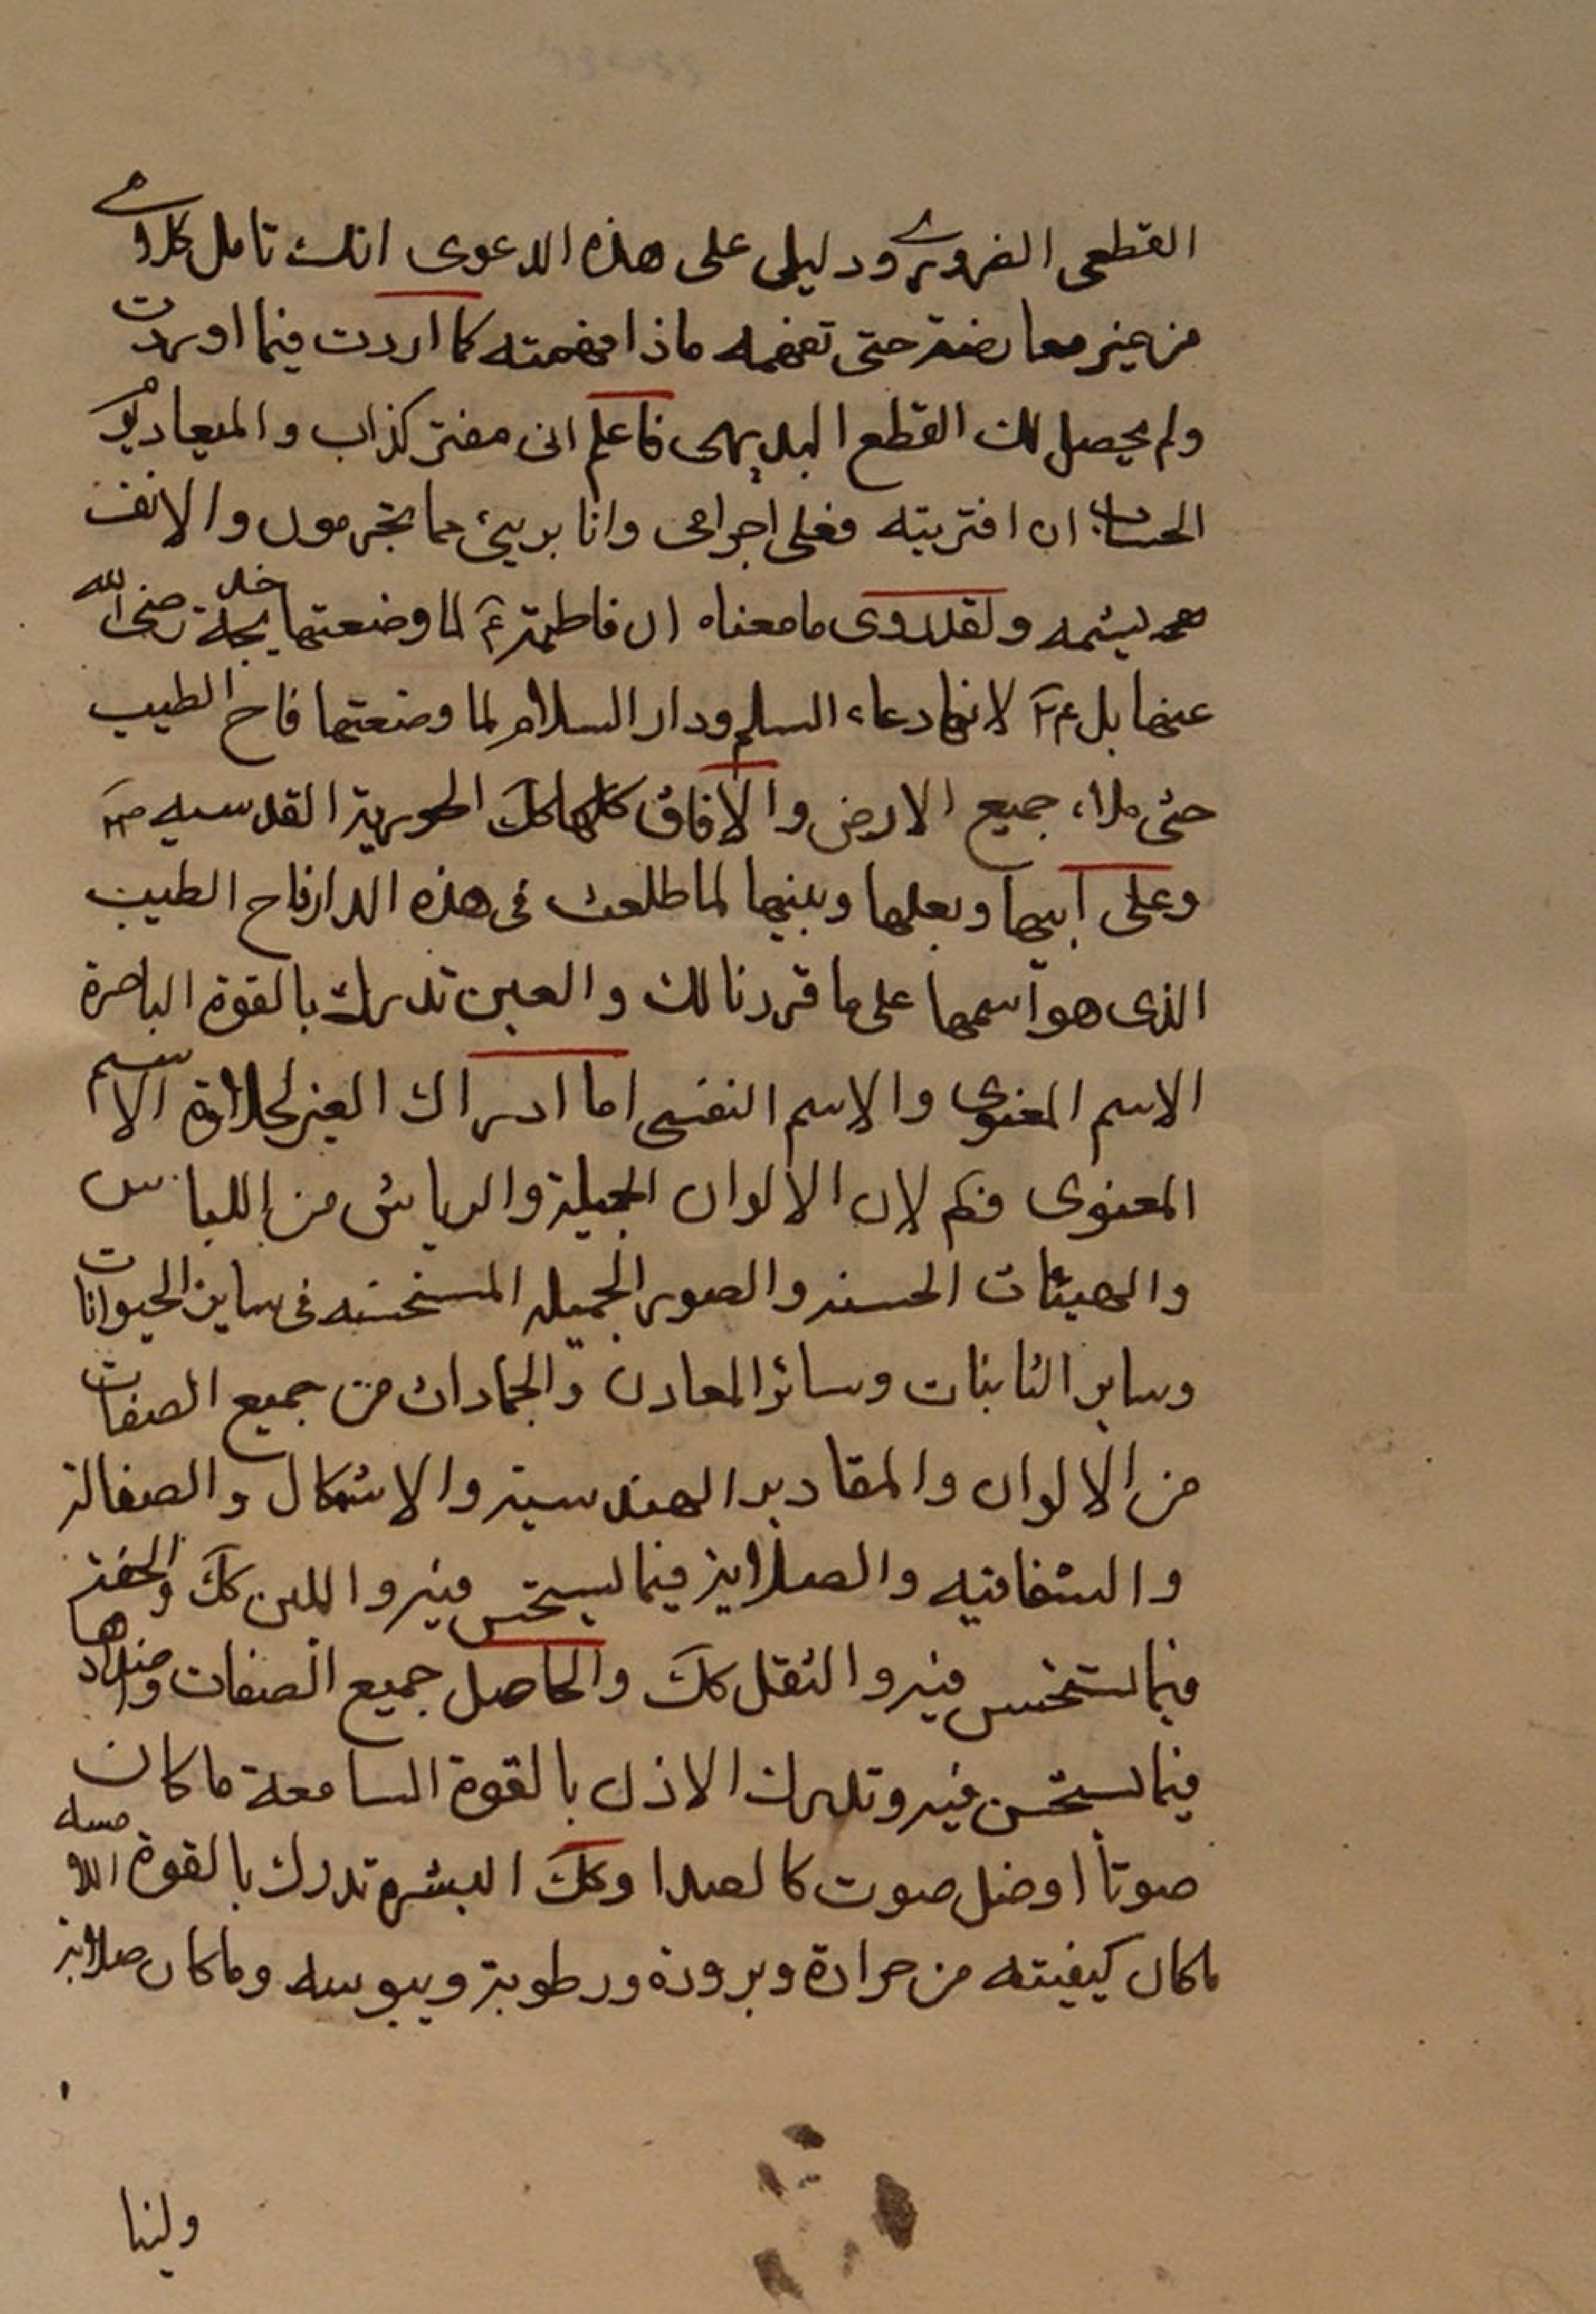 القطعى الضرورى ودليلى على هذه الدعوى انك تامل كلامى
من غير معارضة حتى تفهمه ماذا فهمته كما اردت فيما اوردت
ولم يحصل لك القطع البديهى فاعلم انى مفتر كذاب والميعاد يوم
الحساب ان افتريته فعلى اجرامى وانا بريئ مما تجرمون والانف
يشمه ولقد روى ما معناه ان فاطمة ع لما وضعتها خديجة رضى الله
عنها بل ع لانها دعاء السلم ودار السلام لما وضعتها فاح الطيب
حتى ملاء جميع الارض والافاق كلها كك الحورية القدسيه ص
وعلى ابيها وبعلها وبنيها لما طلعت فى هذه الدار فاح الطيب
الذى هو اسمها على ما قررنا لك والعين تدرك بالقوة الباصرة
الاسم المعنوى والاسم النفسى اما ادراك العين لحلاوة الاسم
المعنوى فكم لان الالوان الجميلة والرياش من اللباس
والهيئات الحسنة والصور الجميله المستحسنه فى ساير الحيوانات
وساير النابتات وسائر المعادن والجمادات من جميع الصفات
من الالوان والمقادير الهندسية والاشكال والصقالة
والشفافيه والصلابة فيما يستحسن فيه واللين كك والخفة
فيما يستحسن فيه والثقل كك والحاصل جميع الصفات واضدادها
فيما يستحسن فيه وتدرك الاذن بالقوة السامعة ما كان
صوتا او ضل صوت كالصدا وكك البشرة تدرك بالقوة اللامسه
ما كان كيفيته من حرارة وبرودة ورطوبة ويبوسه وما كان صلابة
ولينا